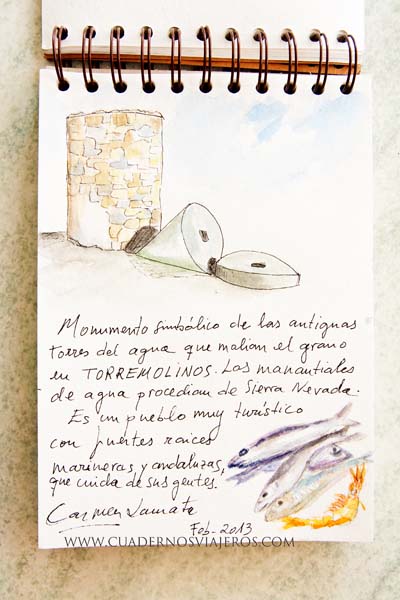 Monumento simbólico de las antiguas
torres del agua que molian el grano
en TORREMOLINOS. Los manantiales
de agua procedian de Sierra Nevada.
Es un pueblo muy turístico
con fuertes raíces
marineras, y andaluzas,
que cuida de sus gentes.
Carmen
Feb-2013
WWW.CUADERNOSVIAJEROS.COM